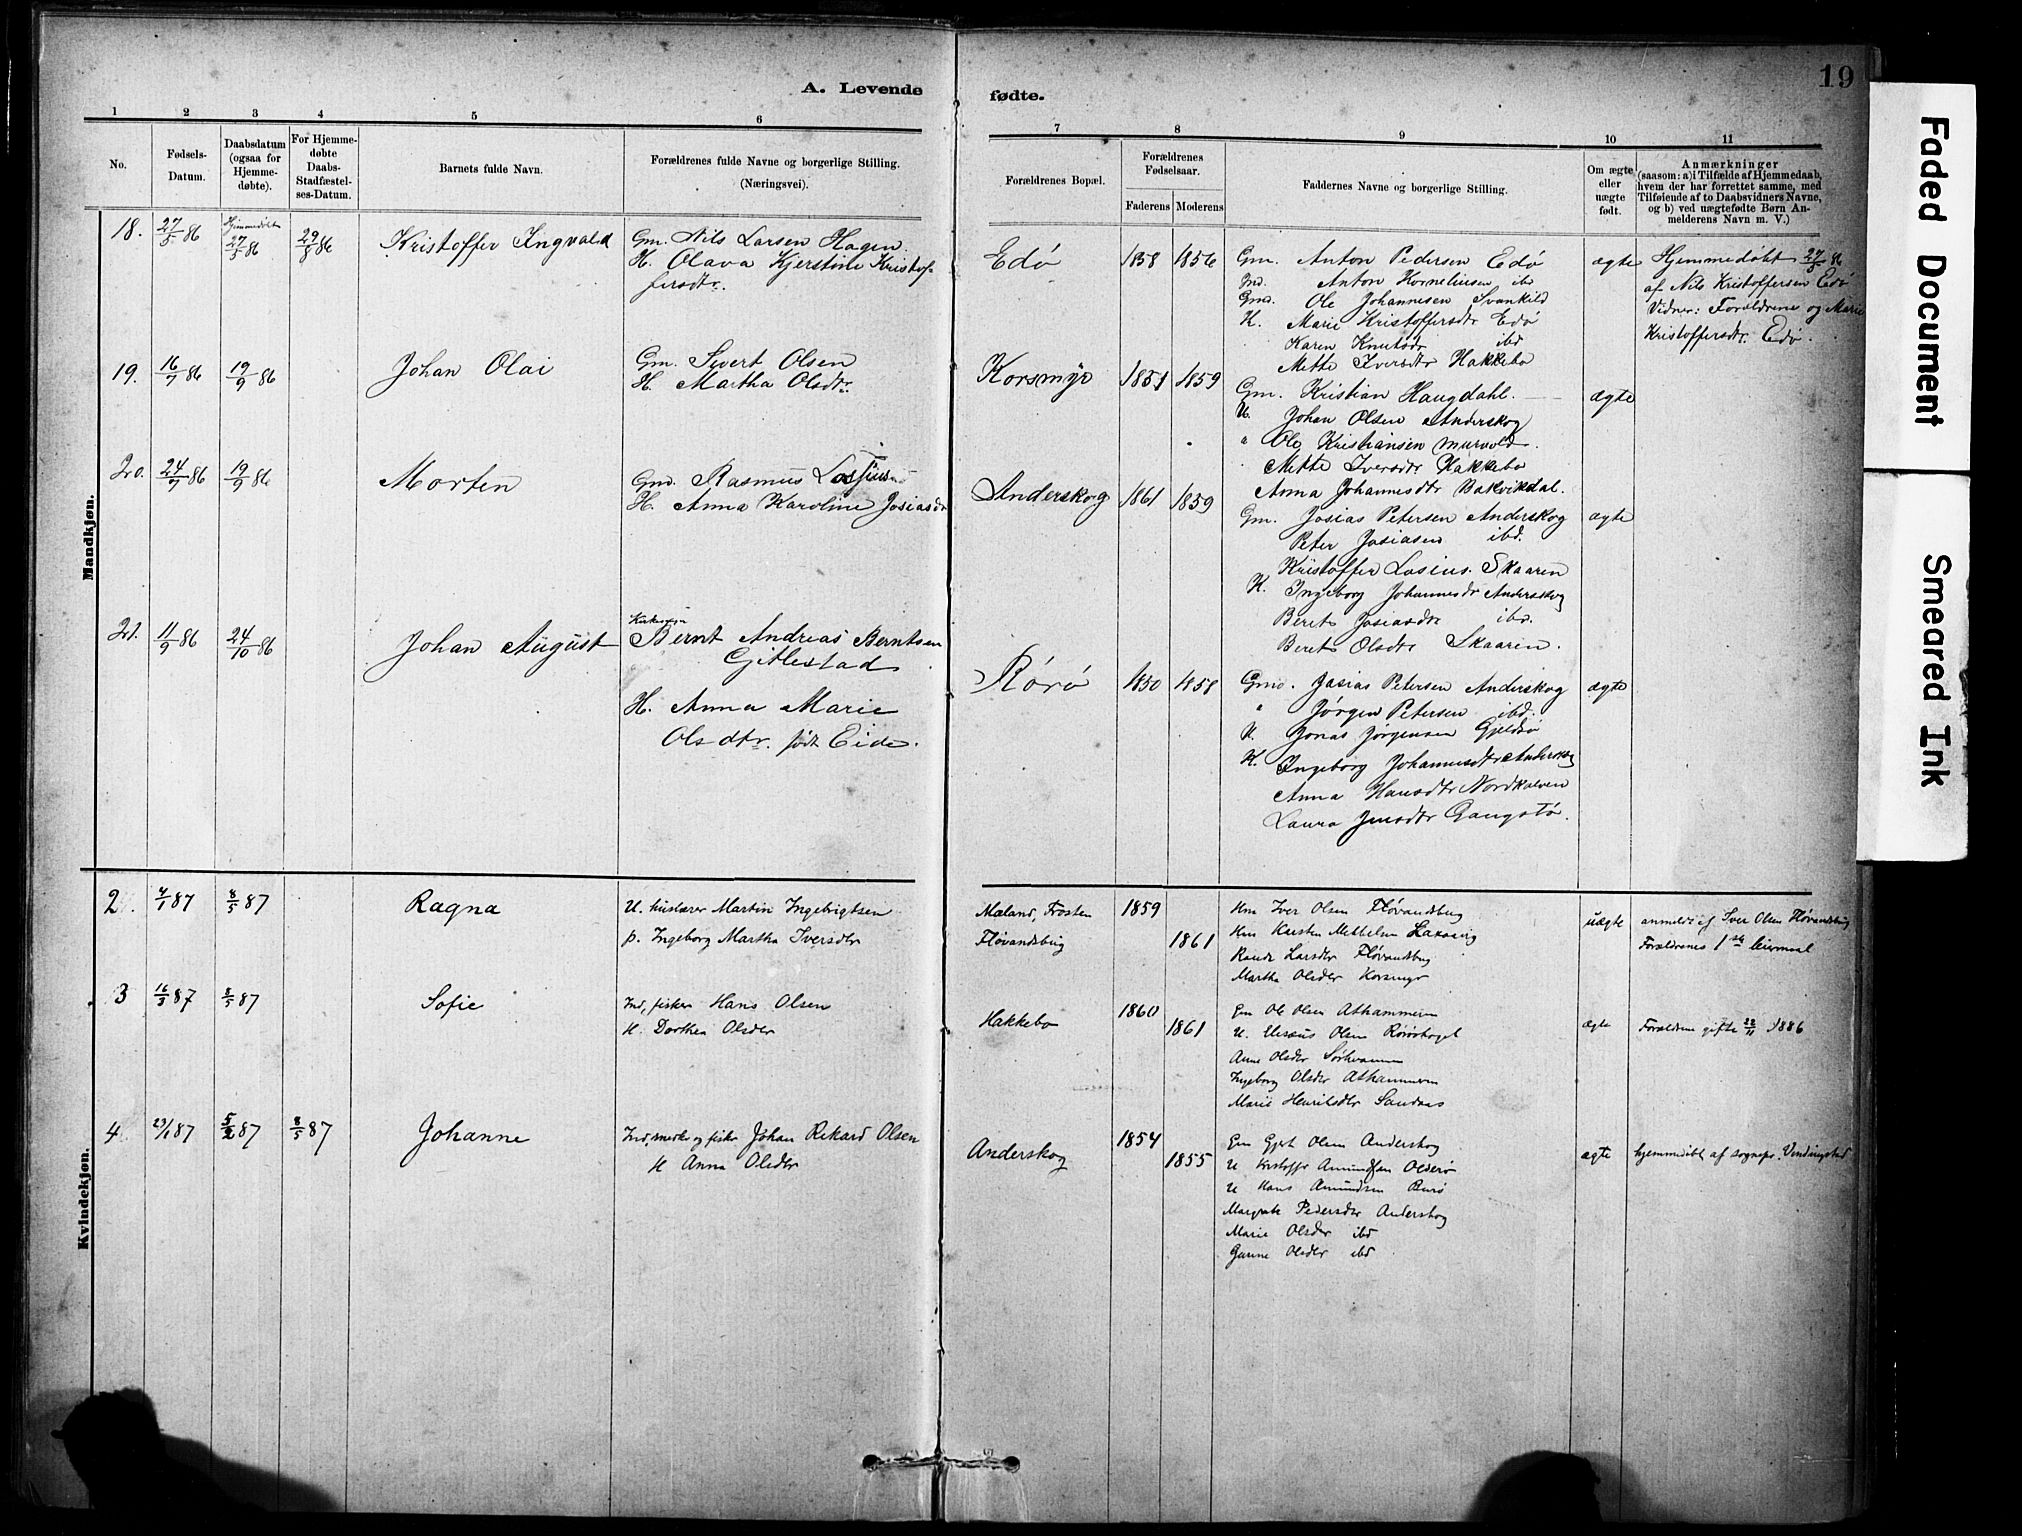 19
A. Levende fødte.
1 2 3 4 5 6 7 8 9 10 11
No.
Fødsels-
Datum.
Daabsdatum
(ogsaa for
Hjemme-
døbte).
For Hjemme-
døbte
Daabs-
Stadfæstel-
ses-Datum.
Barnets fulde Navn.
Forældrenes fulde Navne og borgerlige Stilling.
(Næringsvei).
Forældrenes Bopæl.
Forældrenes
Fødselsaar.
Faderens Moderens
Faddernes Navne og borgerlige Stilling.
Om ægte
eller
uægte
født.
Anmærkninger
(saasom: a) i Tilfælde af Hjemmedaab,
hvem der har forrettet samme, med
Tilføiende af to Daabsvidners Navne,
og b) ved uægtefødte Børn An-
melderens Navn m. V.)
Mandkjøn.
18. 27/5 86 Hjemmedøbt 27/5 86 29/8 86 Kristoffer Ingvald
Gm. Nils Larsen Hagen.
H. Olava Kjerstine Kristof-
fersdtr.
Edø 1858 1856
Gm. Anton Pedersen Edø
Ind. Anton Korneliusen ibd
Gmd. Ole Johannesen Svankild
K. Marie Kristoffersdtr Edø
Karen Knutsdr ibd
Mette Iversdtr Hakkebo
ægte
Hjemmedøbt 27/5 86
af Nils Kristoffersen Edø
Vidner: Forældrene og Marie
Kristoffersdtr. Edø.
19. 16/7 86 19/9 86 Johan Olai
Gm. Sivert Olsen
H. Martha Olsdtr.
Korsmyr 1851 1859
Gm. Kristian Haugdahl.
U. Johan Olsen Anderskog
" Ole Kristiansen Murvold.
Mette Iversdtr Hakkebo
Anna Johannesdtr Bakvikdal.
ægte
20. 24/7 86 19/9 86 Morten
Gmd. Rasmus Lossius
H. Anna Karoline Josiasdr
Anderskog 1861 1859
Gm. Josias Petersen Anderskog
Peter Josiasen ibd.
Kristoffer Losius. Skaaren
K. Ingeborg Johannesdr Anderskog
Berit Josiasdtr ibd.
Berets Olsdtr Skaaren.
ægte
21. 11/9 86 24/10 86 Johan August
Bernt Andreas Berntsen
Gjtlestad
H. Anna Marie
Olsdtr. født Eide.
Rørø 1850 1858
Gmd. Josias Petersen Anderskog
" Jørgen Petersen ibd.
U. Jonas Jørgensen Gjeldø
K. Ingeborg Johannesdtr Anderskog
Anna Hansdtr Nordkalven
Laura Jensdtr Gangstø.
ægte
Kvindekjøn.
2 4/1 87 8/5 87 Ragna
U. huslærer Martin Ingebrigtsen
p. Ingeborg Martha Iversdtr
Mæland, Frosten 1859
Fløvandsbug 1861
Hm Iver Olsen Fløvandsbug
Hm Karsten Mekkelsen Laxavig
Rande Larsdtr Fløvandsbug
Martha Olsdtr Korsmyr
uægte
anmeldt af Iver Olsen Fløvandsbug
Forældrenes 1ste leiermaal
3 16/3 87 8/5 87 Sofie
Ind, fisker Hans Olsen
H. Dorthea Olsdtr
Hakkebo 1860 1861
Gm Ole Olsen Akhammeren
U. Elesæus Olsen Rørøskaget
Anne Olsdtr
Ingeborg Olsdtr Akhammeren
Marie Henriksdtr Sandnes
ægte
Forældrene gifte 28/11 1886
4 29/1 87 5/2 87 8/5 87 Johanne
Ind, smed og fisker Johan Rikard Olsen
H Anna Olsdtr
Anderskog 1854 1855
Gm Gjert Olsen Anderskog
U Kristoffer Amundsen Olderø
U Hans Amundsen Burø
Margrete Pedersdtr Anderskog
Marie Olsdtr ibd
Gurine Olsdtr ibd
ægte
hjemmedøbt af sognepr. Vindingstad
Faded Document
Smeared Ink